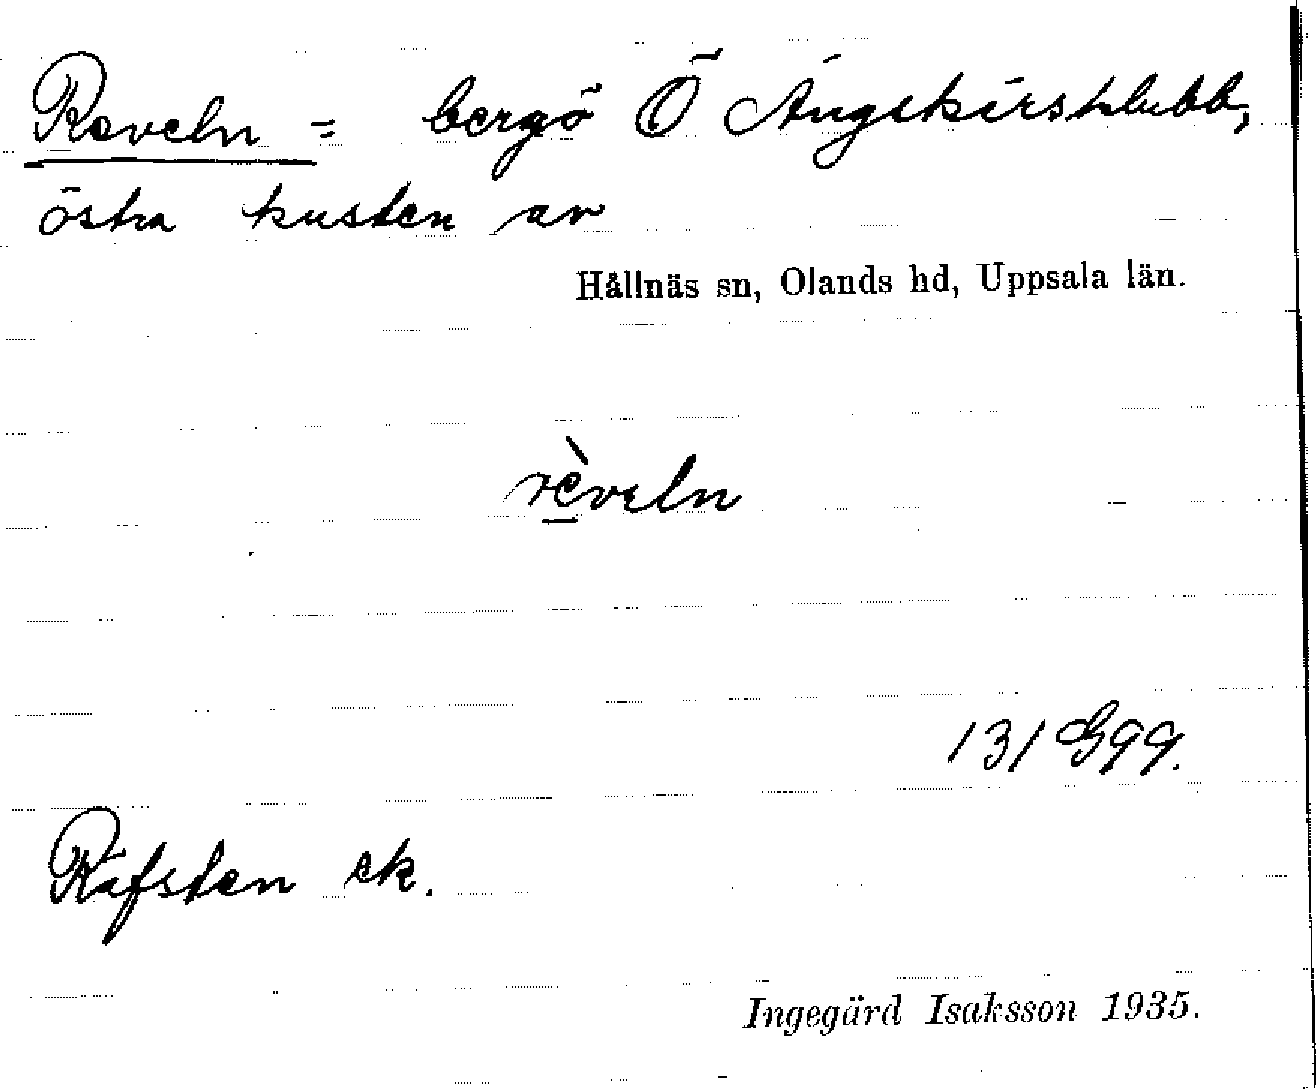 Reveln = bergö Ö Ängskärsklubb,
östra kusten av
Hållnäs sn, Olands hd, Uppsala län.
rèveln
131 G99.
Räfsten ek.
Ingegärd Isaksson 1935.